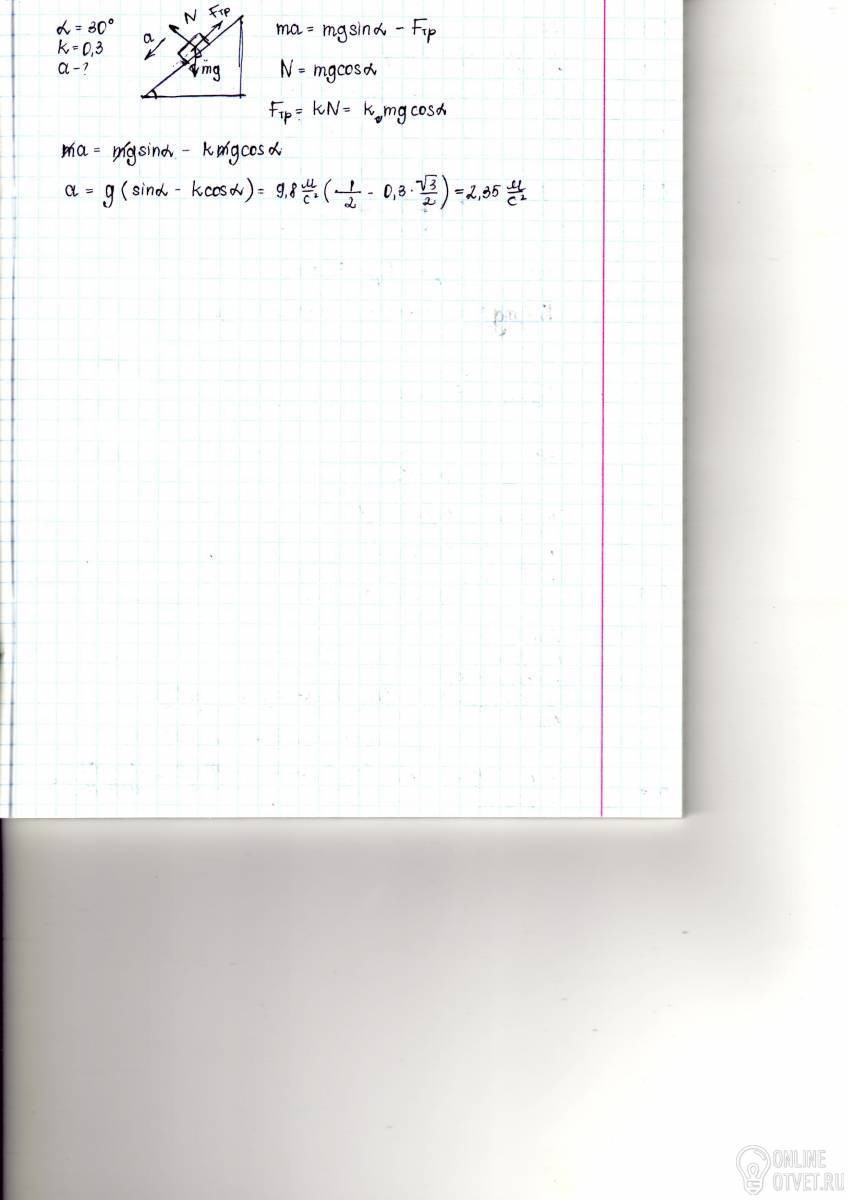 α = 30°
k = 0,3
a - ?
a
N
Fтр
mg
ma = mgsinα - Fтр
N = mgcosα
Fтр = kN = k mgcosα
ma = mgsinα - kmgcosα
a = g (sinα - kcosα) = 9,8 м/с² (1/2 - 0,3 · √3/2) = 2,35 м/с²
ONLINE
OTVET.RU